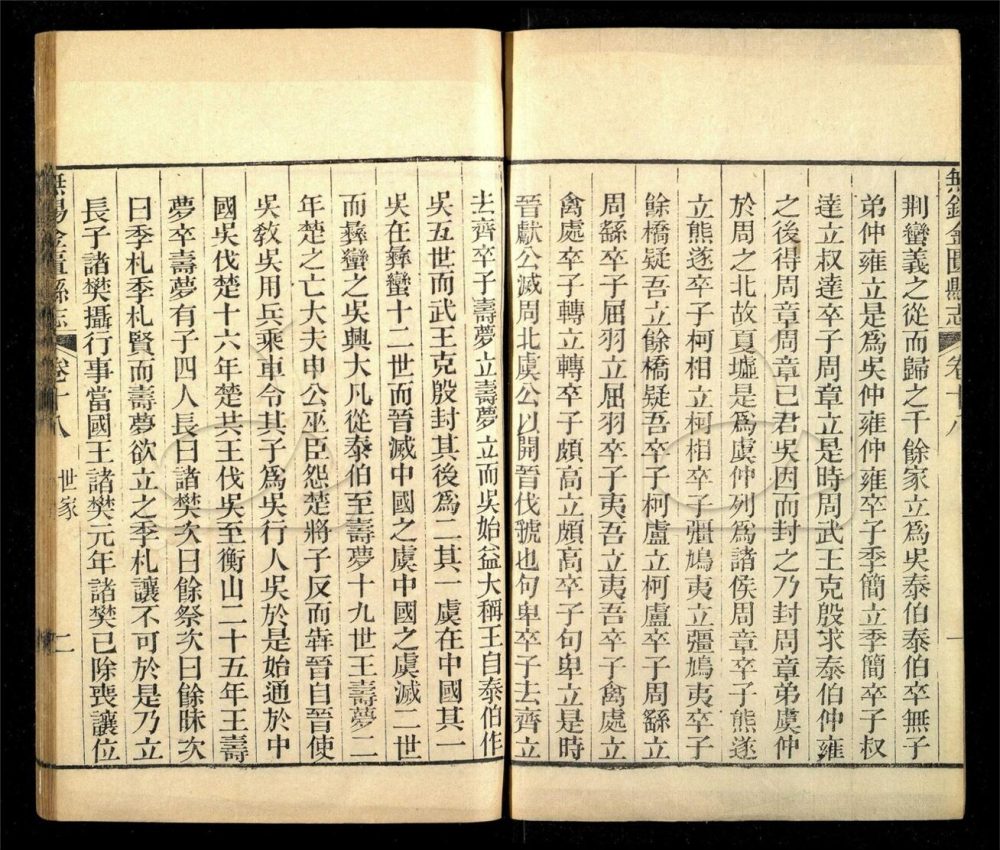 無錫金匱縣志 卷十八 一
荆蠻義之從而歸之千餘家立爲吳泰伯泰伯卒無子
弟仲雍立是爲吳仲雍仲雍卒子季簡立季簡卒子叔
達立叔達卒子周章立是時周武王克殷求泰伯仲雍
之後得周章周章已君吳因而封之乃封周章弟虞仲
於周之北故夏墟是爲虞仲列爲諸侯周章卒子熊遂
立熊遂卒子柯相立柯相卒子彊鳩夷立彊鳩夷卒子
餘橋疑吾立餘橋疑吾卒子柯盧立柯盧卒子周繇立
周繇卒子屈羽立屈羽卒子夷吾立夷吾卒子禽處立
禽處卒子轉立轉卒子頗高立頗高卒子句卑立是時
晉獻公滅周北虞公以開晉伐虢也句卑卒子去齊立
去齊卒子壽夢立壽夢立而吳始益大稱王自泰伯作
吳五世而武王克殷封其後爲二其一虞在中國其一
吳在彝蠻十二世而晉滅中國之虞中國之虞滅二世
而彝蠻之吳興大凡從泰伯至壽夢十九世王壽夢二
年楚之亡大夫申公巫臣怨楚將子反而犇晉自晉使
吳敎吳用兵乘車令其子爲吳行人吳於是始通於中
國吳伐楚十六年楚共王伐吳至衡山二十五年王壽
夢卒壽夢有子四人長曰諸樊次曰餘祭次曰餘昧次
曰季札季札賢而壽夢欲立之季札讓不可於是乃立
長子諸樊攝行事當國王諸樊元年諸樊已除喪讓位
無錫金匱縣志 卷十八 世家 二